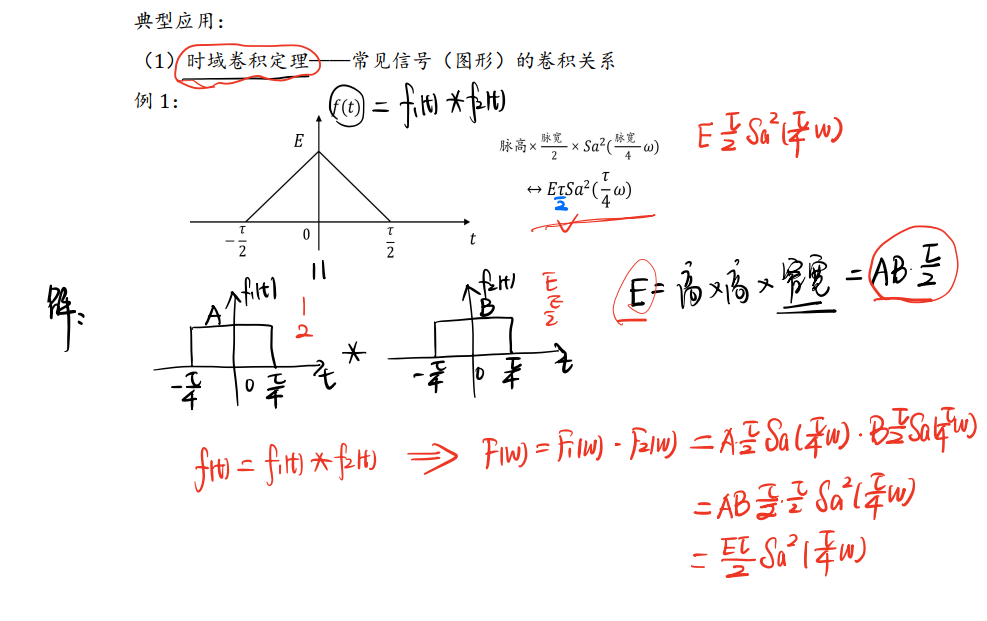 典型应用：
（1）时域卷积定理——常见信号（图形）的卷积关系
例 1：
f(t) = f₁(t) * f₂(t)
E
-τ/2 0 τ/2 t
脉高×脉宽/2×Sa²(脉宽/4 ω)
↔ EτSa²(τ/4 ω)
2
E τ/2 Sa²(τ/4 ω)
解：
f₁(t)
A
1
2
-τ/4 0 τ/4 t
*
f₂(t)
B
E
τ/2
-τ/4 0 τ/4 t
E = 高×高×窄宽 = AB·τ/2
f(t) = f₁(t) * f₂(t) ⇒ F(ω) = F₁(ω) · F₂(ω) = A·τ/2 Sa(τ/4 ω) · B τ/2 Sa(τ/4 ω)
= AB τ/2 · τ/2 Sa²(τ/4 ω)
= Eτ/2 Sa²(τ/4 ω)